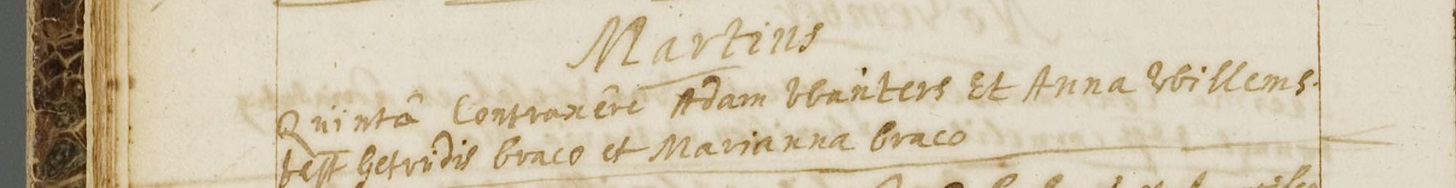 Martius
Quintâ Contraxêre Adam Wauters Et Anna Willems.
test Getrudis braco et Marianna braco